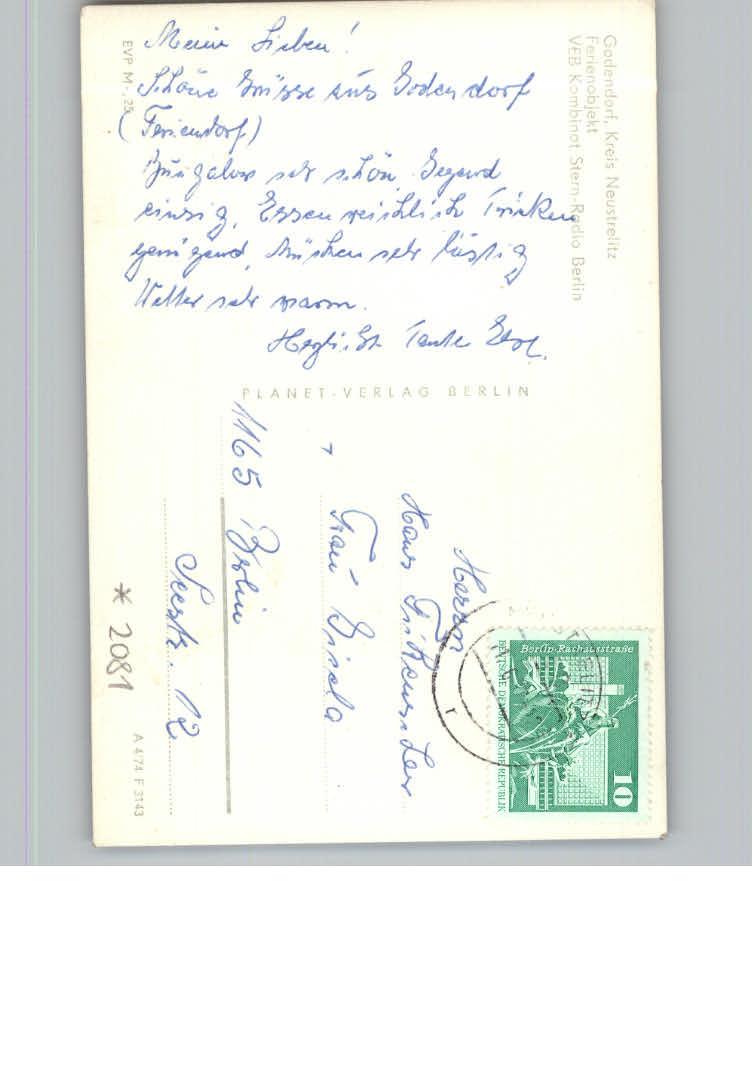 Godendorf, Kreis Neustrelitz
Ferienobjekt
VEB Kombinat Stern-Radio Berlin
EVP M -,25
Meine Lieben!
Schöne Grüsse aus Godendorf
(Feriendorf)
Bungalow sehr schön Gegend
einzig, Essen reichlich Trinken
genügend, Mücken sehr lästig
Wetter sehr warm.
Herzlichst Tante
PLANET-VERLAG BERLIN
Herrn
Hans
Frau Gisela
1165 Berlin
Seestr. 12
* 2081
A 4/74 F 3143
Berlin-Rathausstraße
DEUTSCHE DEMOKRATISCHE REPUBLIK
10